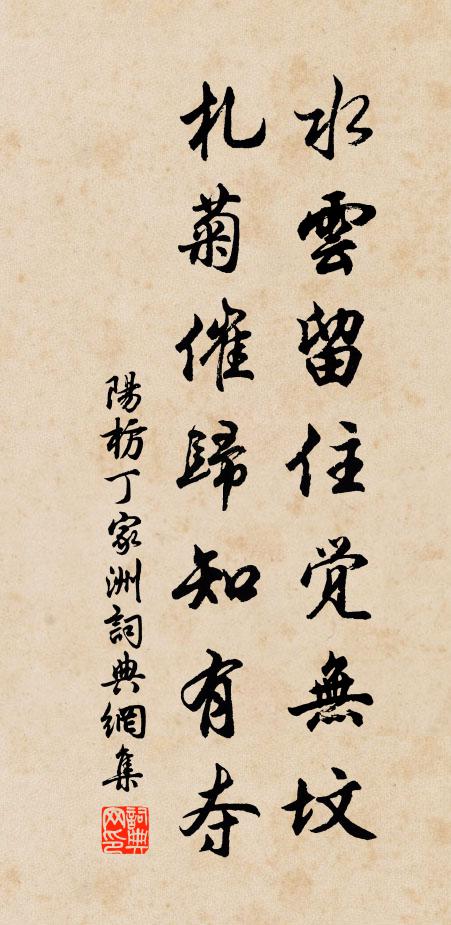 水雲留住覚無坟
札菊催歸知有夺
陽枋丁家洲詞典網集
詞典網印